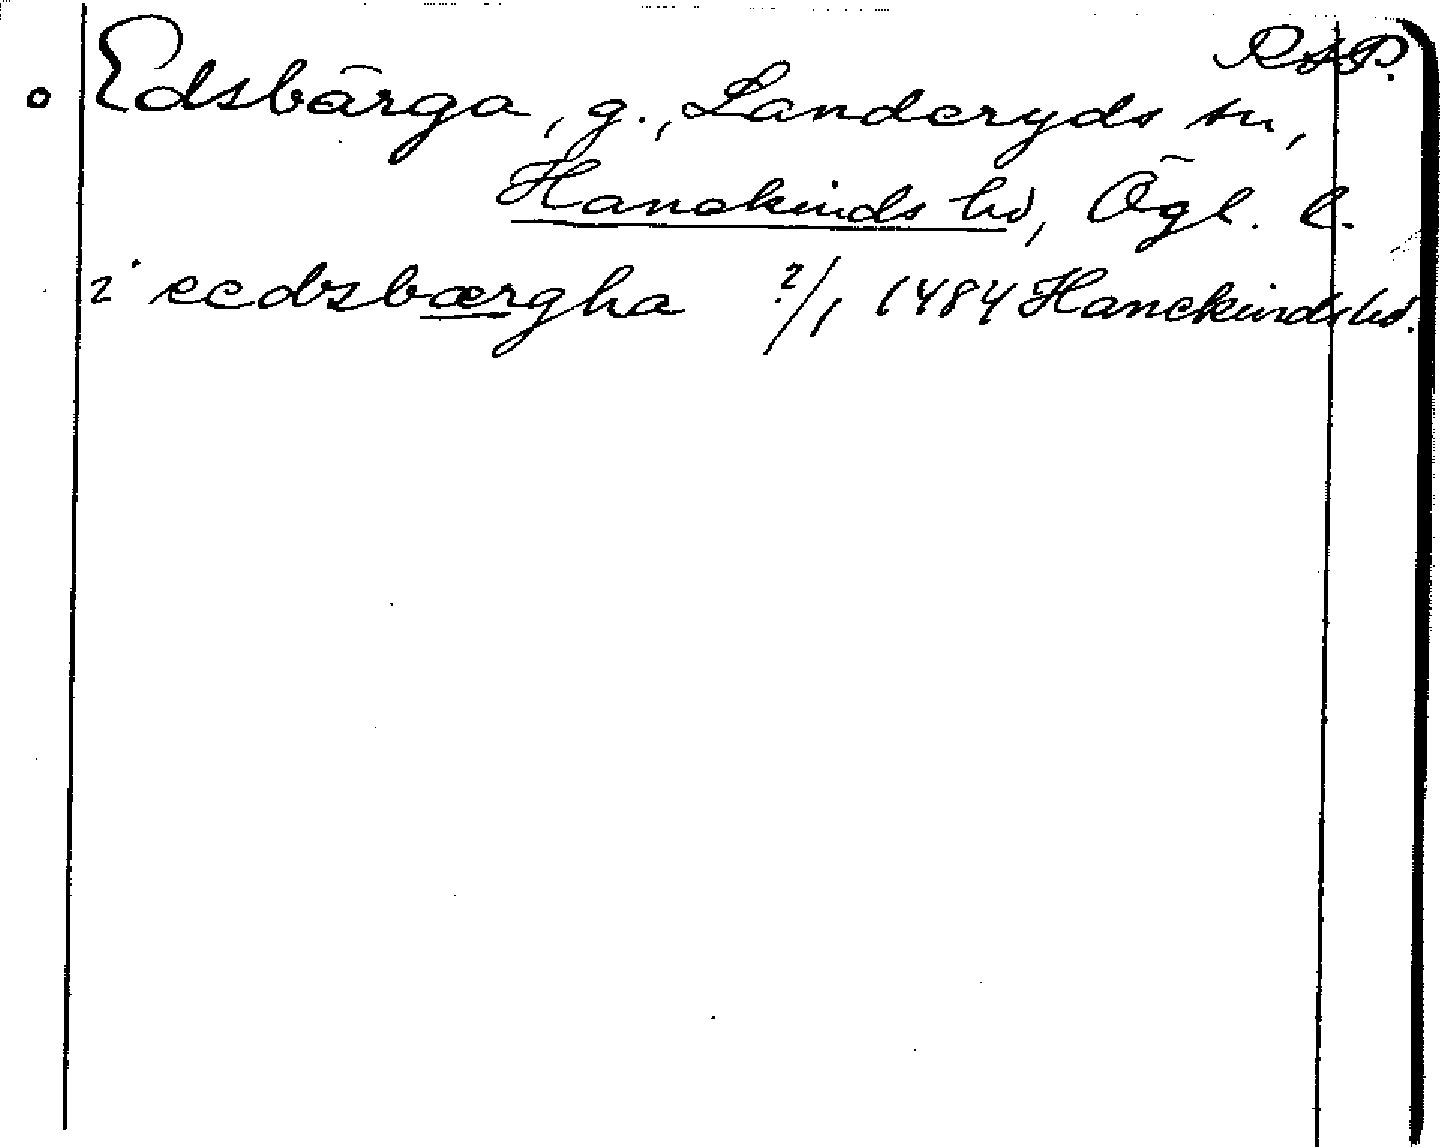 RAP.
Edsbärga, g., Landeryds sn,
Hanekinds hd, Ögl. l.
i eedzbærgha 2/1 1484 Hanekinds hd.